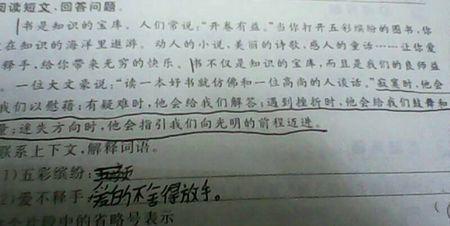 阅读短文，回答问题。
书是知识的宝库。人们常说：“开卷有益。”当你打开五彩缤纷的图书，你
在知识的海洋里遨游。动人的小说，美丽的诗歌，感人的童话……让你爱
释手，给你带来无穷的快乐。书不仅是知识的宝库，而且是我们的良师益
。一位大文豪说：“读一本好书就仿佛和一位高尚的人谈话。”寂寞时，他会
我们以慰藉；有疑难时，他会给我们解答；遇到挫折时，他会给我们鼓舞和
量；迷失方向时，他会指引我们向光明的前程迈进。
联系上下文，解释词语。
1)五彩缤纷：
2)爱不释手：爱的不舍得放手。
个片段中的省略号表示